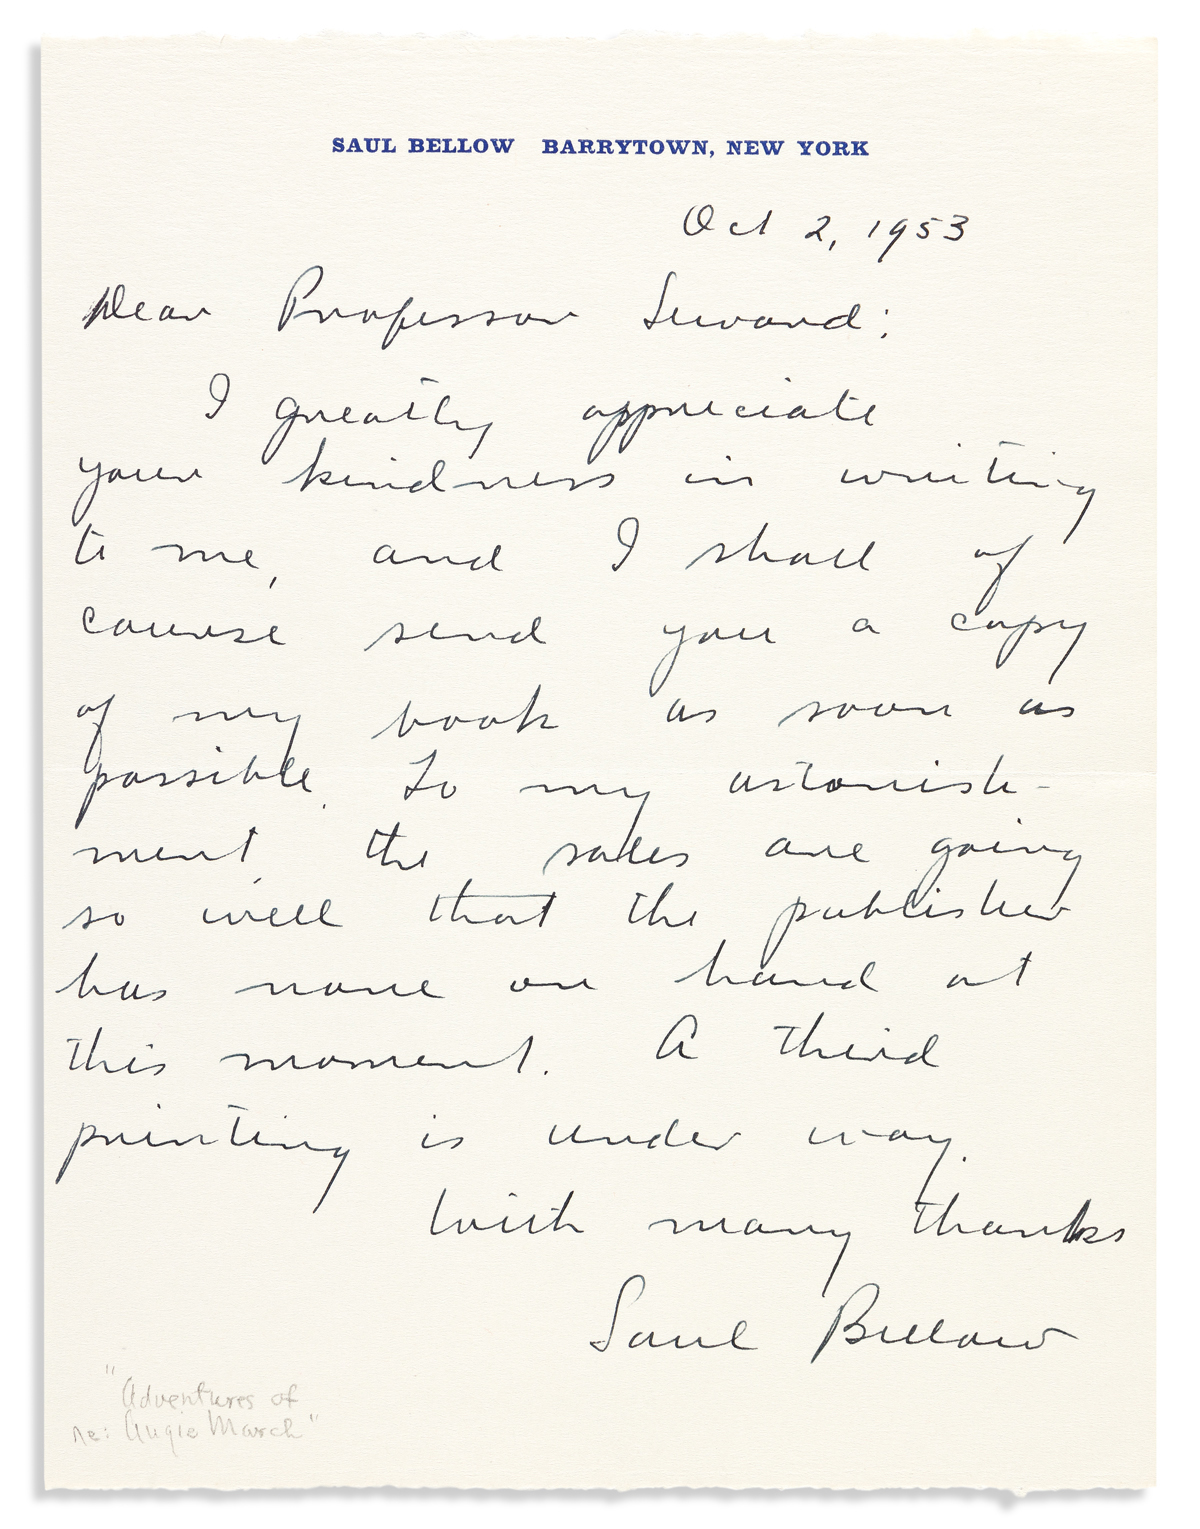 SAUL BELLOW BARRYTOWN, NEW YORK
Oct 2, 1953
Dear Professor Seward:
I greatly appreciate
your kindness in writing
to me, and I shall of
course send you a copy
of my book as soon as
possible. To my astonish-
ment, the sales are going
so well that the publisher
has none on hand at
this moment. A third
printing is under way.
With many thanks
Saul Bellow
"Adventures of
re: Augie March"